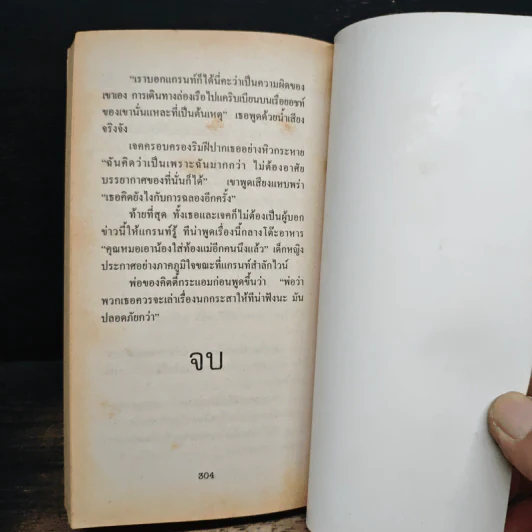 “เราบอกแกรนท์ก็ได้นี่คะว่าเป็นความผิดของ
เขาเอง การเดินทางล่องเรือไปแคริบเบียนบนเรือยอชท์
ของเขานั่นแหละที่เป็นต้นเหตุ” เธอพูดด้วยน้ำเสียง
จริงจัง
เจคครอบครองริมฝีปากเธออย่างหิวกระหาย
“ฉันคิดว่าเป็นเพราะฉันมากกว่า ไม่ต้องอาศัย
บรรยากาศของที่นั่นก็ได้” เขาพูดเสียงแหบพร่า
“เธอคิดยังไงกับการฉลองอีกครั้ง”
ท้ายที่สุด ทั้งเธอและเจคก็ไม่ต้องเป็นผู้บอก
ข่าวนี้ให้แกรนท์รู้ ทีน่าพูดเรื่องนี้กลางโต๊ะอาหาร
“คุณหมอเอาน้องใส่ท้องแม่อีกคนนึงแล้ว” เด็กหญิง
ประกาศอย่างภาคภูมิใจขณะที่แกรนท์สำลักไวน์
พ่อของคิตตี้กระแอมก่อนพูดขึ้นว่า “พ่อว่า
พวกเธอควรจะเล่าเรื่องนกกระสาให้ทีน่าฟังนะ มัน
ปลอดภัยกว่า”
จบ
304